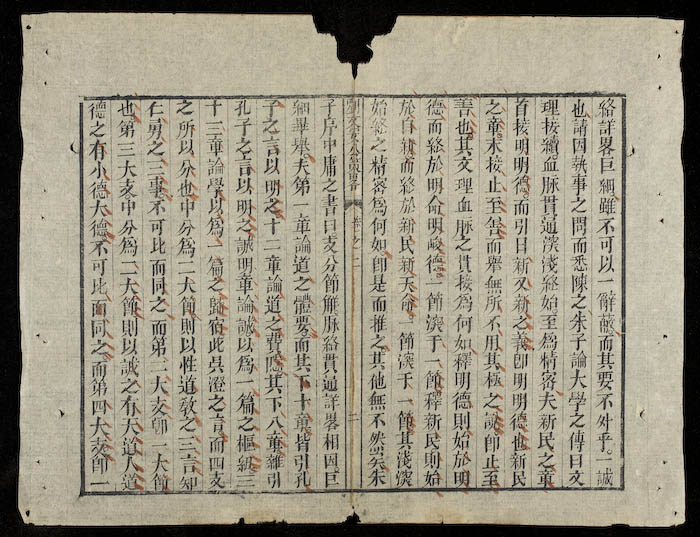 絡詳畧巨細雖不可以一辭蔽而其要不外乎一誠
也請因執事之問而悉陳之朱子論大學之傳曰文
理接續血脉貫通深淺終始至爲精密夫新民之章
首接明明德而引日新又新之義卽明明德也新民
之章末接止至善而舉無所不用其極之說卽止至
善也其文理血脉之貫接爲何如釋明德則始於明
德而終於明命明峻德一節深于一節釋新民則始
於自新而終於新民新天命一節深于一節其淺深
始終之精密爲何如卽是而推之其他無不然矣朱
二
子序中庸之書曰支分節解脉絡貫通詳畧相因巨
細畢舉夫第一章論道之體要而其下十章皆引孔
子之言以明之十二章論道之費隱其下八章雜引
孔子之言以明之誠明章論誠以爲一篇之樞紐三
十三章論學以爲一篇之歸宿此吳澄之言而四支
之所以分也中分爲二大節則以性道教之三言知
仁勇之三事不可比而同之而第二大支卽一大節
也第三大支中分爲二大節則以誠之有天道人道
德之有小德大德不可比而同之而第四大支卽一